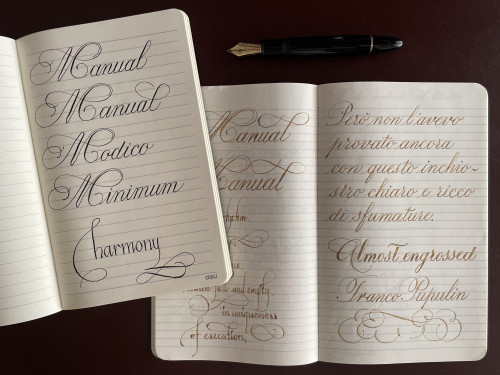 Manual
Manual
Modico
Minimum
Charmony
deli
Manual
Manual
and empty,
in uniqueness
of execution,
Però non l'avevo
provato ancora
con questo inchio-
stro chiaro e ricco
di sfumature.
Almost engrossed
Franco Papulin